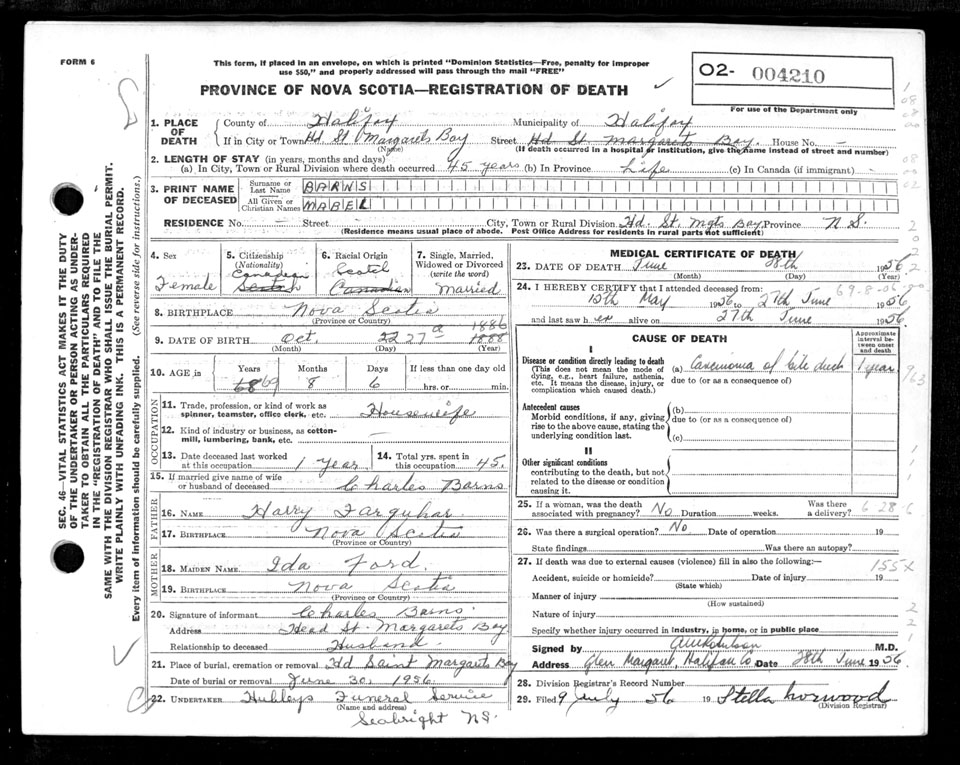 FORM 6
This form, if placed in an envelope, on which is printed "Dominion Statistics—Free, penalty for improper
use $50," and properly addressed will pass through the mail "FREE"
O2- 004210
For use of the Department only
PROVINCE OF NOVA SCOTIA—REGISTRATION OF DEATH
1. PLACE OF DEATH County of Halifax Municipality of Halifax
If in City or Town Hd St. Margarets Bay (Name) Street Hd St Margarets Bay. House No. -
(If death occurred in a hospital or institution, give the name instead of street and number)
2. LENGTH OF STAY (in years, months and days)
(a) In City, Town or Rural Division where death occurred 45 years (b) In Province Life (c) In Canada (if immigrant)
3. PRINT NAME OF DECEASED
Surname or Last Name BARNS
All Given or Christian Names MABEL
RESIDENCE No. Street City, Town or Rural Division Hd. St. Mgts Bay Province N S.
(Residence means usual place of abode. Post Office Address for residents in rural parts not sufficient)
4. Sex Female
5. Citizenship (Nationality) Canadian Scotch
6. Racial Origin Scotch Canadian
7. Single, Married, Widowed or Divorced (write the word) Married
8. BIRTHPLACE Nova Scotia
(Province or Country)
9. DATE OF BIRTH Oct. 22 27 1886 1888
(Month) (Day) (Year)
10. AGE in Years 68 69 Months 8 Days 6 If less than one day old hrs. or min.
OCCUPATION
11. Trade, profession, or kind of work as spinner, teamster, office clerk, etc. Housewife
12. Kind of industry or business, as cotton-mill, lumbering, bank, etc. —
13. Date deceased last worked at this occupation 1 Year
14. Total yrs. spent in this occupation 45.
15. If married give name of wife or husband of deceased Charles Barns
FATHER
16. NAME Harry Farquhar
17. BIRTHPLACE Nova Scotia
(Province or Country)
MOTHER
18. MAIDEN NAME Ida Ford
19. BIRTHPLACE Nova Scotia
(Province or Country)
20. Signature of informant Charles Barns
Address Head St. Margarets Bay
Relationship to deceased Husband
21. Place of burial, cremation or removal Hd Saint Margarets Bay
Date of burial or removal June 30, 1956.
22. UNDERTAKER Hubleys Funeral Service
(Name and address)
Seabright N.S.
MEDICAL CERTIFICATE OF DEATH
23. DATE OF DEATH June 28th 1956
(Month) (Day) (Year)
24. I HEREBY CERTIFY that I attended deceased from: 69-8-06
15th May 1956 to 27th June 1956
and last saw her alive on 27th June 1956.
CAUSE OF DEATH
Approximate interval between onset and death
I
Disease or condition directly leading to death
(This does not mean the mode of dying, e.g., heart failure, asthenia, etc. It means the disease, injury, or complication which caused death.)
(a) Carcinoma of bile duct 1 year
due to (or as a consequence of)
Antecedent causes
Morbid conditions, if any, giving rise to the above cause, stating the underlying condition last.
(b)
due to (or as a consequence of)
(c)
II
Other significant conditions
contributing to the death, but not related to the disease or condition causing it.
25. If a woman, was the death associated with pregnancy? No Duration weeks. Was there a delivery? 6 28 6
26. Was there a surgical operation? No Date of operation 19
State findings Was there an autopsy?
27. If death was due to external causes (violence) fill in also the following: 155X
Accident, suicide or homicide? Date of injury 19
(State which)
Manner of injury
(How sustained)
Nature of injury
Specify whether injury occurred in industry, in home, or in public place
Signed by M.D.
Address Glen Margaret, Halifax Co Date 28th June 1956
28. Division Registrar's Record Number
29. Filed 9 July 56 19 Stella Norwood
(Division Registrar)
SEC. 46—VITAL STATISTICS ACT MAKES IT THE DUTY
OF THE UNDERTAKER OR PERSON ACTING AS UNDER-
TAKER TO OBTAIN ALL THE PARTICULARS REQUIRED
IN THE "REGISTRATION OF DEATH" AND TO FILE THE
SAME WITH THE DIVISION REGISTRAR WHO SHALL ISSUE THE BURIAL PERMIT.
WRITE PLAINLY WITH UNFADING INK. THIS IS A PERMANENT RECORD.
Every item of information should be carefully supplied. (See reverse side for instructions.)